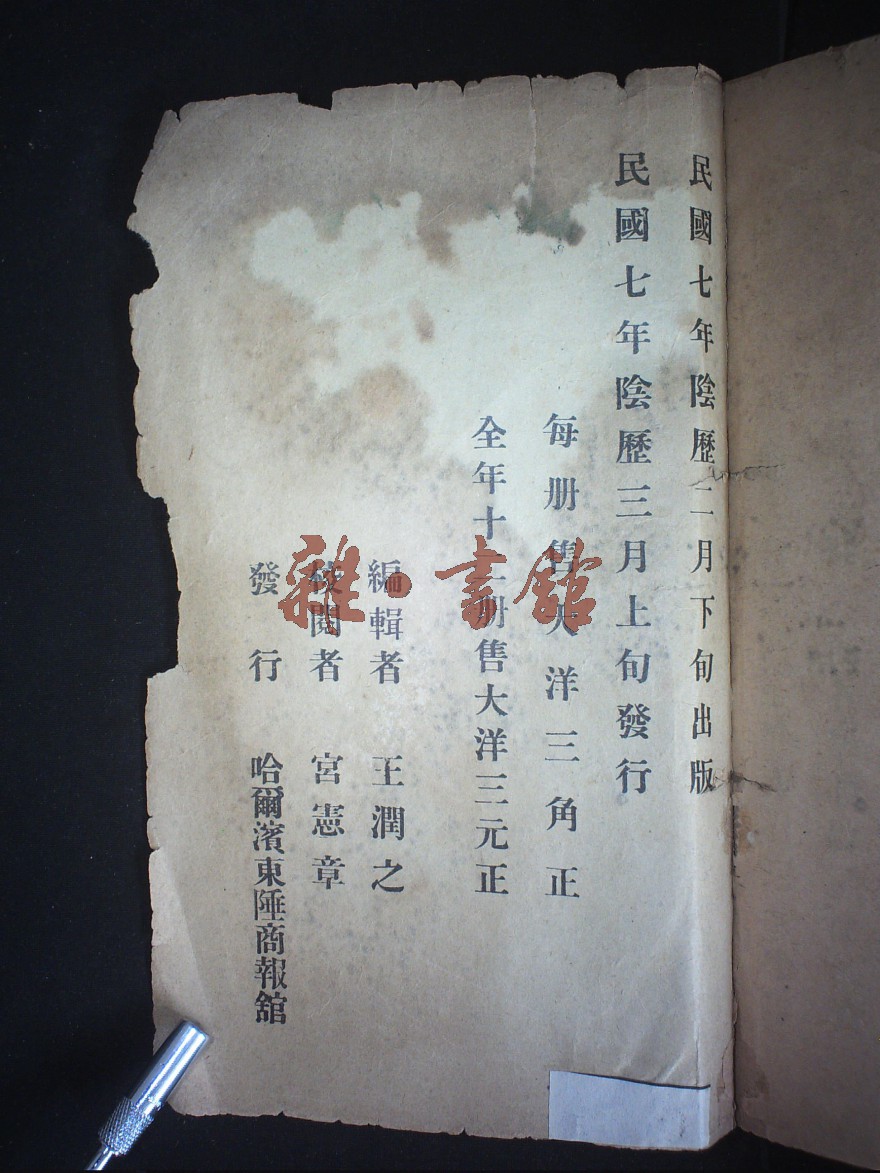 民國七年陰歷二月下旬出版
民國七年陰歷三月上旬發行
每册售大洋三角正
全年十二册售大洋三元正
編輯者 王潤之
校閱者 宮憲章
發行 哈爾濱東陲商報館
雜·書館